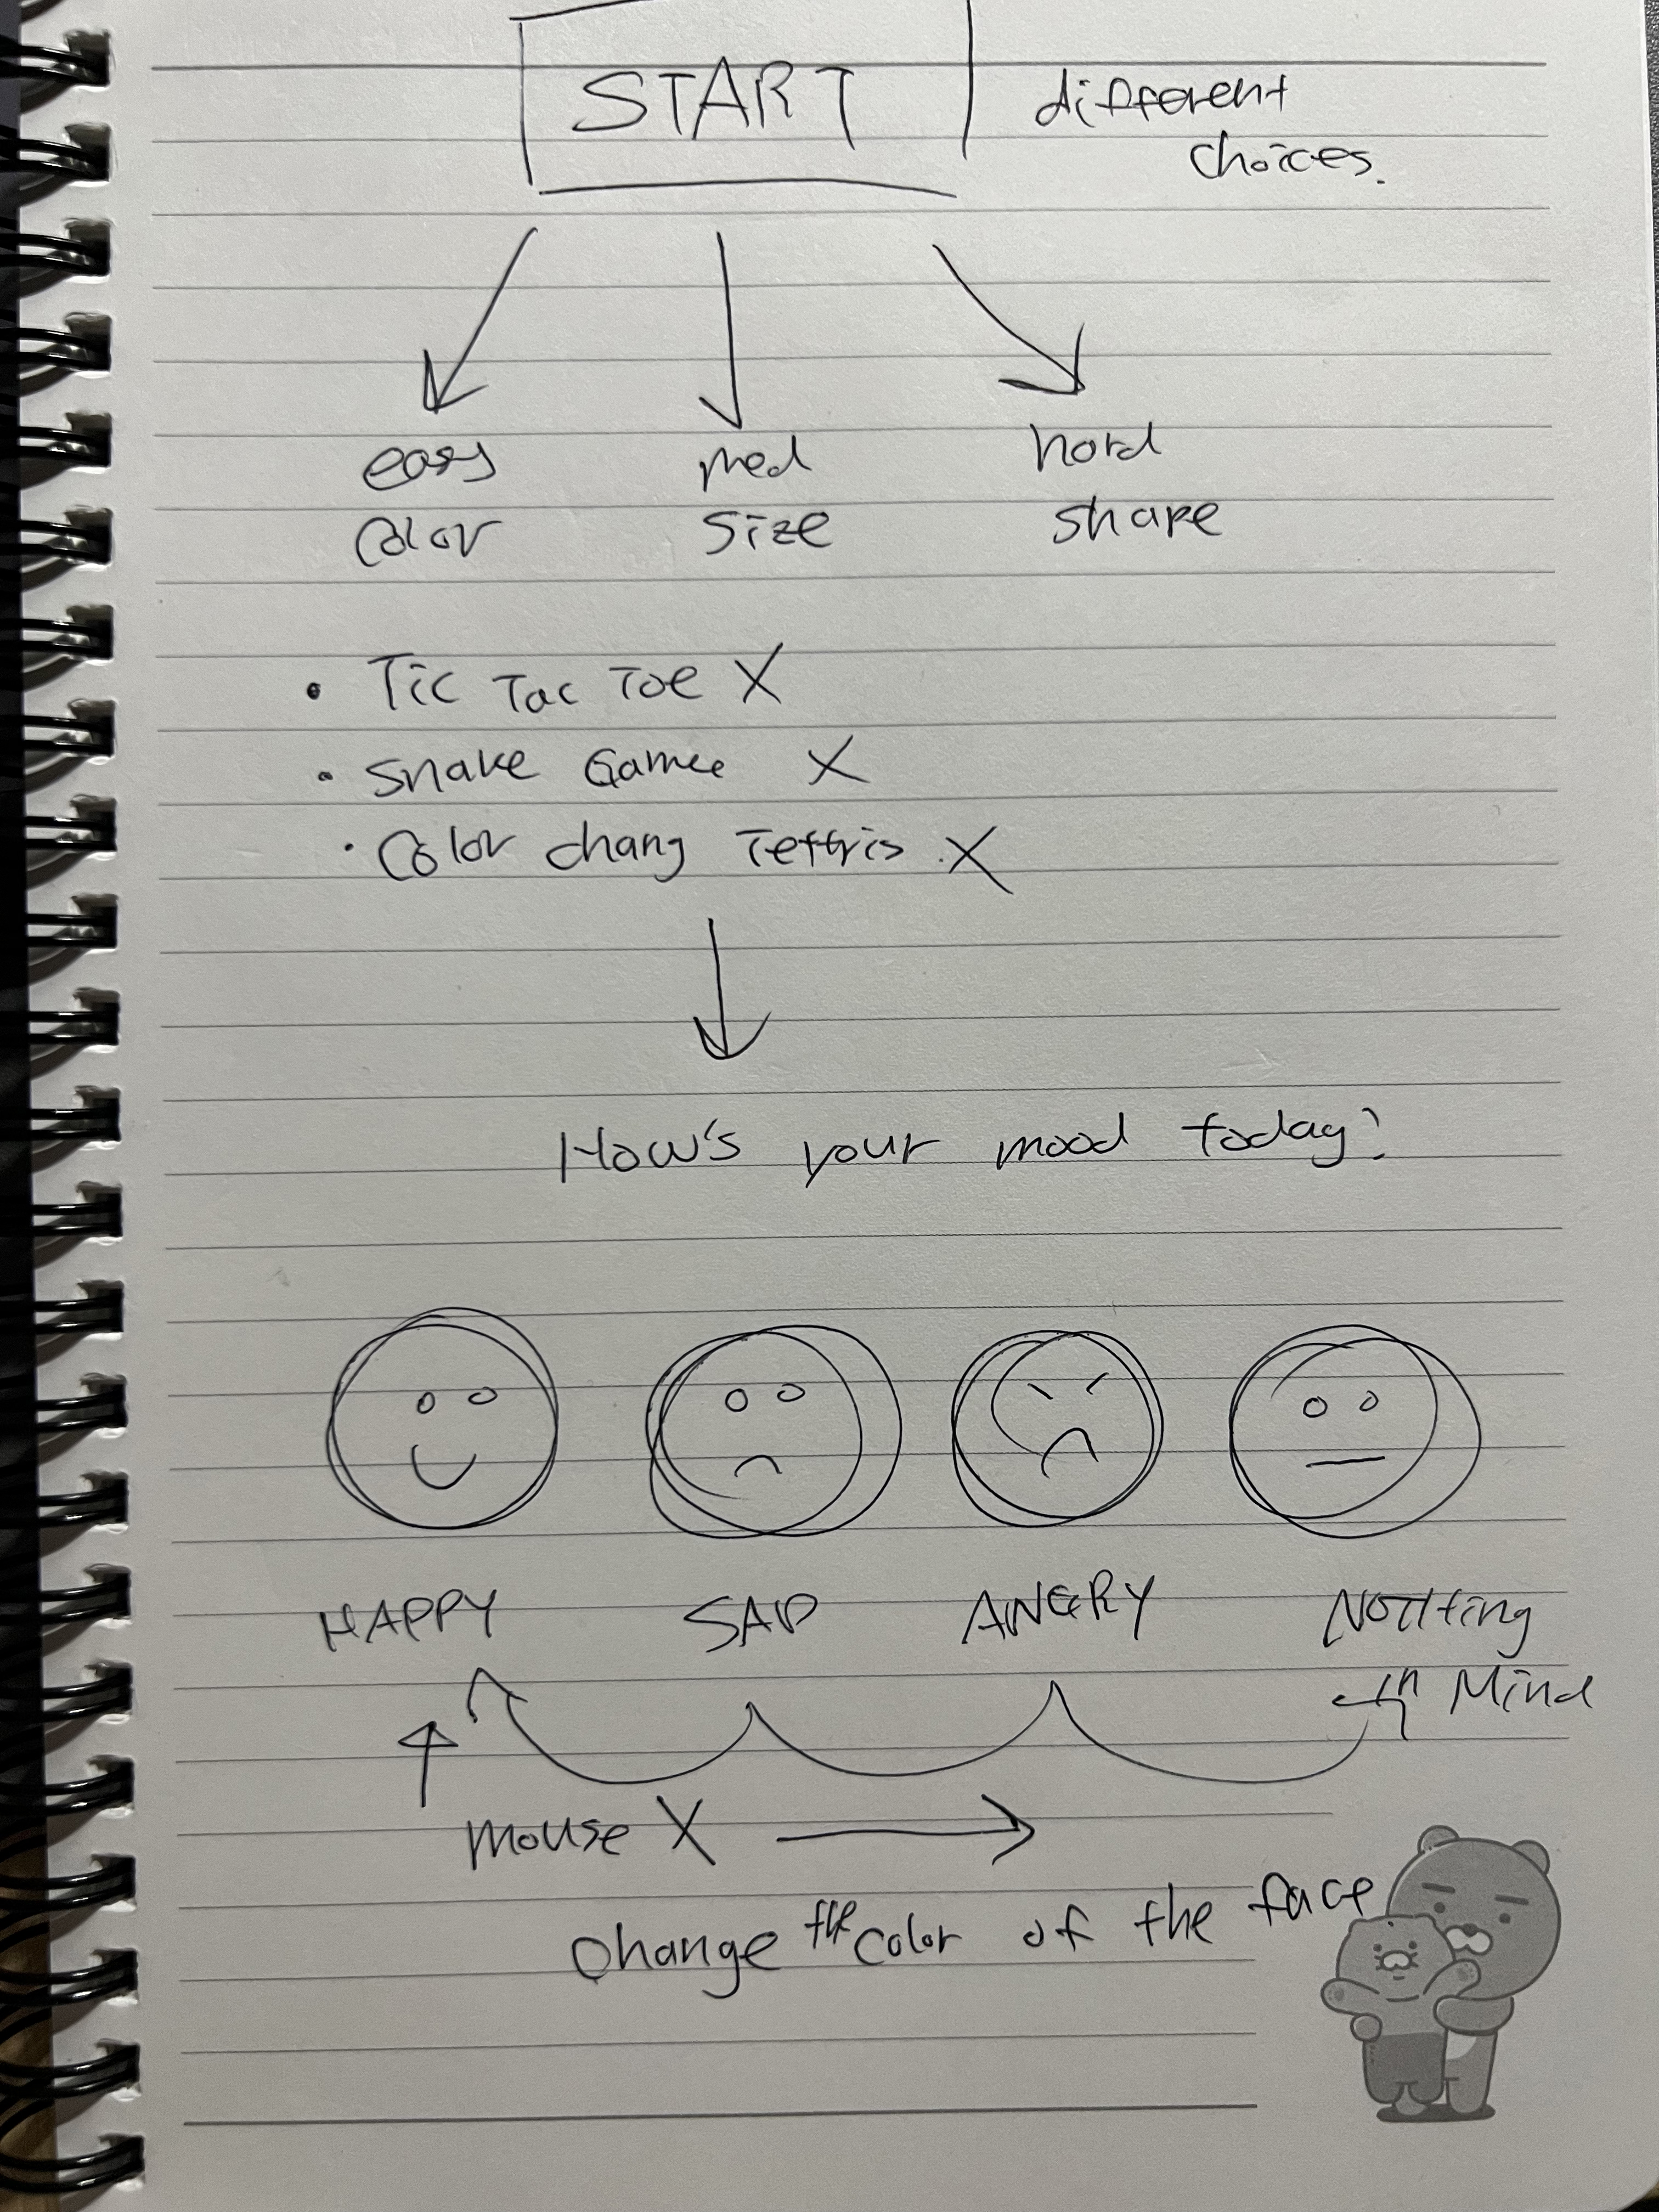 START
different
choices.
easy
color
med
size
hard
shape
• Tic Tac Toe X
• Snake Game X
• Color chang Tettris X
How's your mood today?
HAPPY
SAD
ANGRY
NOTHing
in Mind
mouse X
change the color of the face